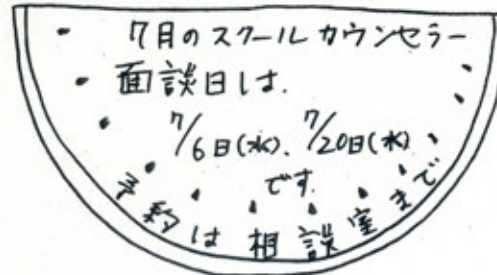 7月のスクールカウンセラー
面談日は.
7/6日(水)、7/20日(水)
です.
予約は相談室まで